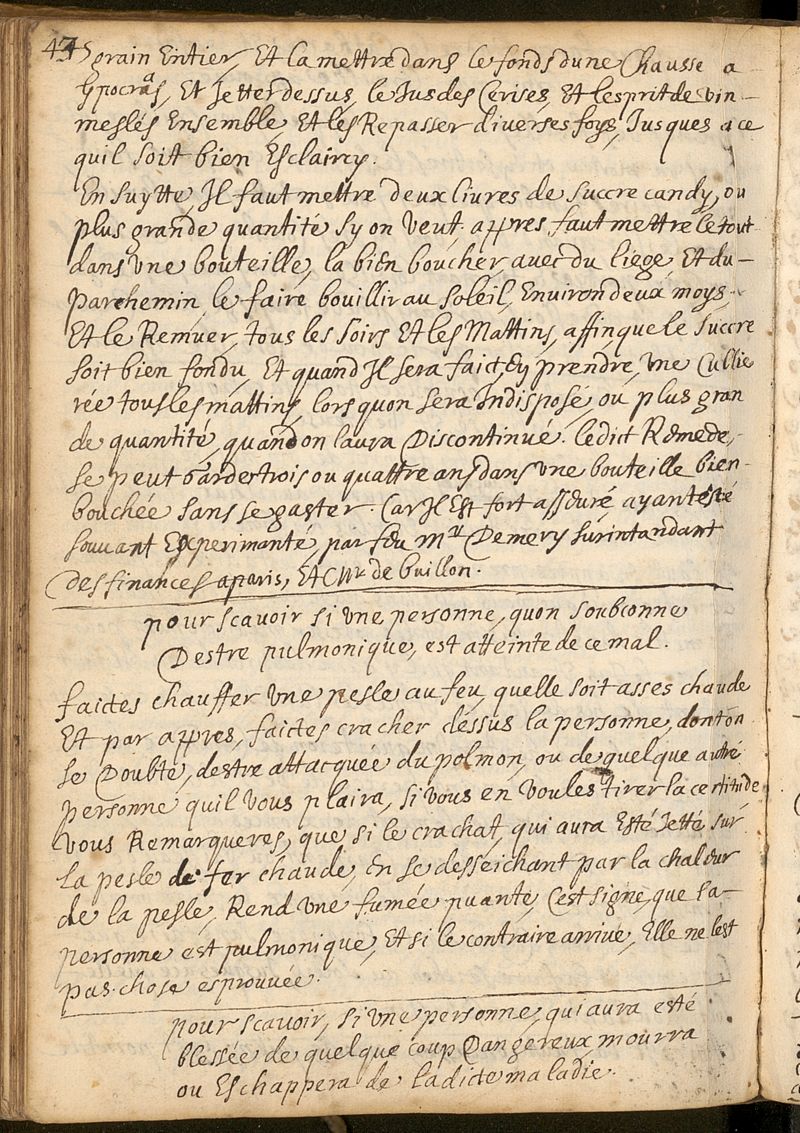 47
grain Entier, Et la mettre dans le fonds dune Chausse a
hpocras, Et Jetter dessus, le Jus des Cerises, Et lesprit de vin
meslés Ensemble, Et les Repasser diverses foys, Jusques a ce
quil soitt bien Esclaircy.
En suytte, Jl faut mettre deux livres de succre candy, ou
plus grande quantité sy on veut. appres faut mettre le tout
dans vne bouteille, la bien boucher, avec du liege, Et du
parchemin, le faire bouillir au soleil, Environ deux moys
Et le Remuer, tous les soirs Et les Mattins, affin que le succre
soit bien fondu, Et quand Jl sera faict, En prendre, vne Cullie
rée tous les mattins, lors quon sera Indisposé, ou plus gran
de quantité, quand on laura Discontinué. ledict Remede,
se peut Garder trois ou quattre ans dans vne bouteille bien
bouchée sans se gaster. Car Jl Est fort asseuré, ayant esté
souvant Experimanté, par feu Mr. Demery surintandant
des finances a paris, Et Mr. de Guillon.
pour scavoir si vne personne, quon soubconne
Destre pulmonique, est atteinte de ce mal.
faictes chauffer vne pesle au feu, quelle soit asses chaude
Et par appres, faictes cracher dessus la personne, dont on
se Doubte, destre attacquée du polmon, ou de quelque autre
personne quil vous plaira, si vous en voules tirer la certitude
vous Remarqueres, que si le crachat, qui aura Esté Jetté sur
la pesle de fer chaude, En se desseichant par la chaleur
de la pesle, Rend vne fumée puante, Cest signe, que la
personne est pulmonique, Et si le contraire arrive, Elle ne lest
pas. chose esprouvée.
pour scavoir, si vne personne, qui aura esté
blessée de quelque coup Dangereux mourra
ou Eschappera de ladicte maladie.